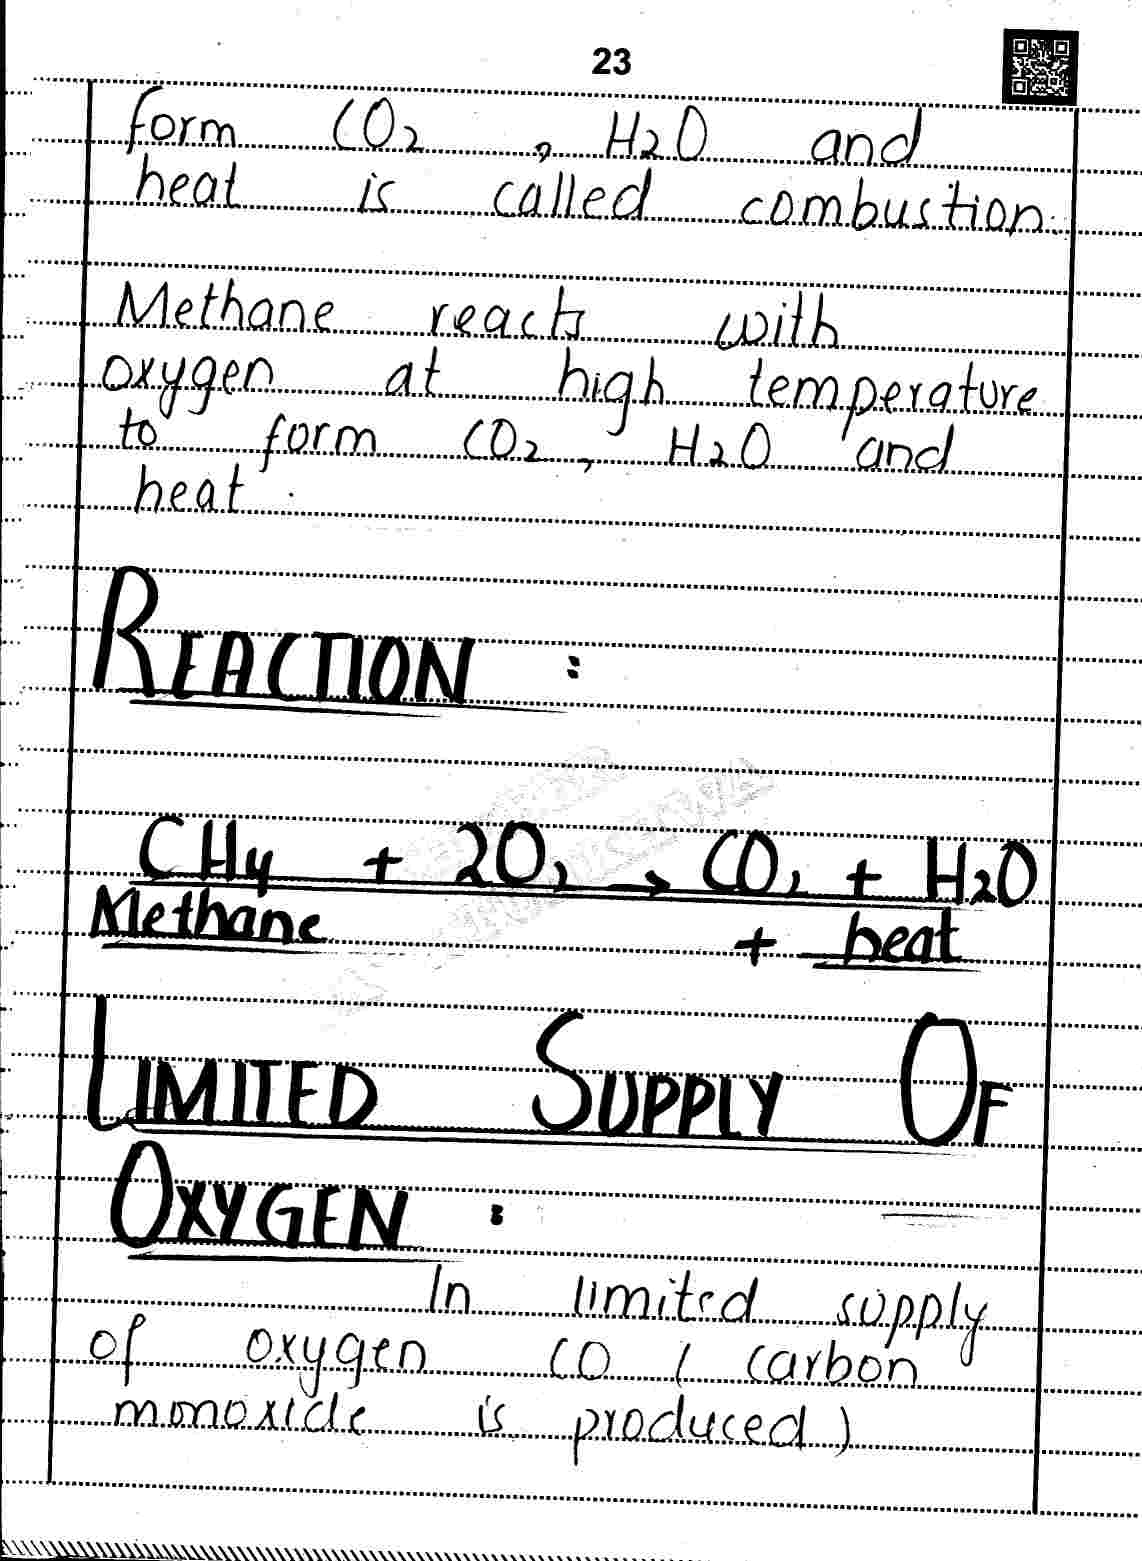 23
form CO2 , H2O and
heat is called combustion.
Methane reacts with
oxygen at high temperature
to form CO2, H2O and
heat.
REACTION :
CH4 + 2O2 → CO2 + H2O
Methane + heat
LIMITED SUPPLY OF
OXYGEN :
In limited supply
of oxygen CO ( carbon
monoxide is produced)